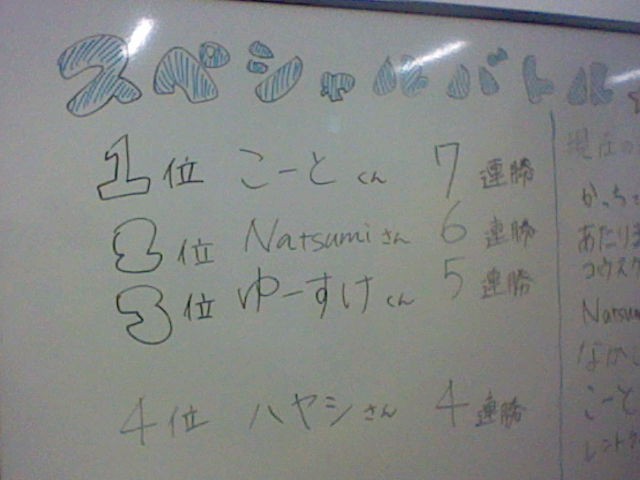 スペシャルバトル
1位 こーとくん 7連勝
2位 Natsumiさん 6連勝
3位 ゆーすけくん 5連勝
4位 ハヤシさん 4連勝
現在の
かっち
あたり
コウスケ
Natsum
なか
こーと
レント